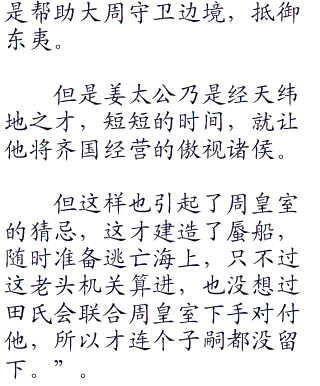 是帮助大周守卫边境，抵御
东夷。
但是姜太公乃是经天纬
地之才，短短的时间，就让
他将齐国经营的傲视诸侯。
但这样也引起了周皇室
的猜忌，这才建造了蜃船，
随时准备逃亡海上，只不过
这老头机关算进，也没想过
田氏会联合周皇室下手对付
他，所以才连个子嗣都没留
下。”。